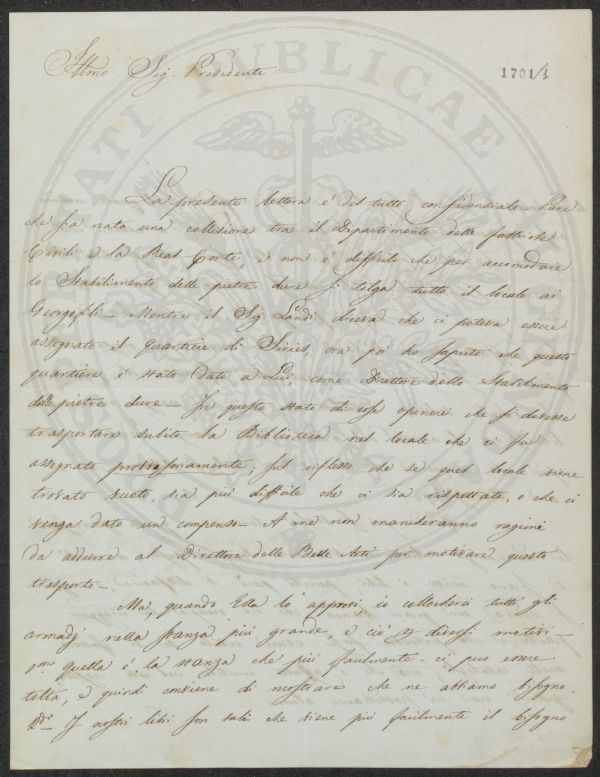 Illmo Sig. Presidente
1701/1
La presente lettera è del tutto confidenziale. Pare
che sia nata una collisione tra il Dipartimento delle fabbriche
Civili e la Real Corte, e non è difficile che per accomodare
lo Stabilimento delle pietre dure si tolga tutto il locale ai
Georgofili. Mentre il Sig. Landi diceva che ci poteva essere
assegnato il quartiere di Siries, ora poi ho saputo che questo
quartiere è stato dato a Lui, come Direttore dello Stabilimento
delle pietre dure. In questo stato di cose opinerei che si dovesse
trasportare subito la Biblioteca nel locale che ci fu
assegnato provvisoriamente; sul riflesso che se quel locale viene
trovato vuoto, sia più difficile che ci sia rispettato, o che ci
venga dato un compenso. A me non mancheranno ragioni
da addurre al Direttore delle Belle Arti per motivare questo
trasporto.
Ma, quando Ella lo approvi, io collocherei tutti gli
armadj nella stanza più grande, e ciò p diversi motivi.
1mo quella è la stanza che più facilmente ci può essere
tolta, e quindi conviene di mostrare che ne abbiamo bisogno.
2do I nostri libri son tali che viene più facilmente il bisogno
PROSPERITATI PUBLICAE AUGENDAE